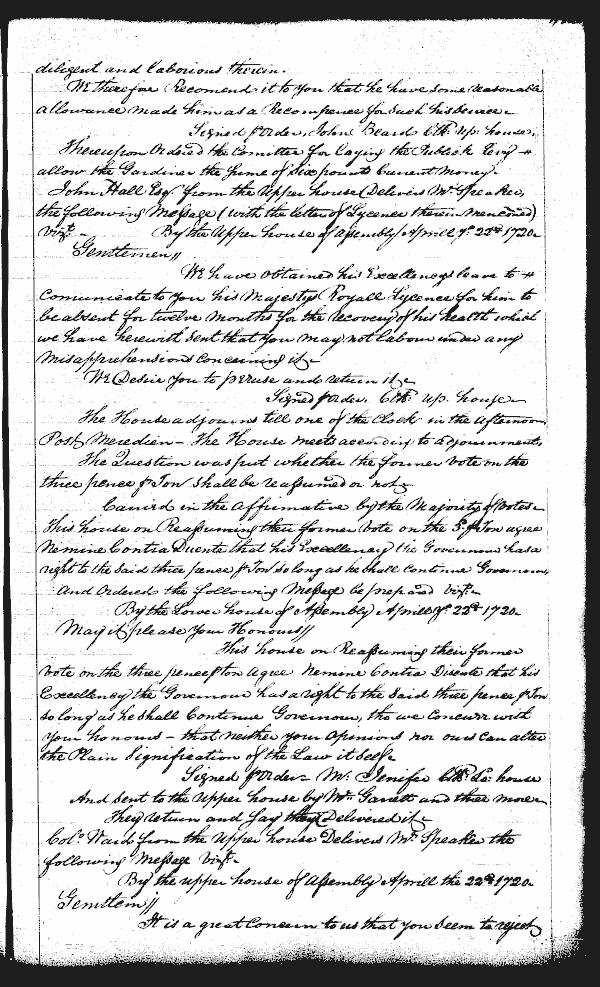 diligent and laborious therein.
We therefore Recomend it to you that he have some reasonable
allowance made him as a Recompence for Such his Service
Signed ꝑ Order, John Beard Clk. up. house.
Thereupon Ordered the Comittee for laying the Publick Levy
allow the Gardiner the Sume of Six pounds Current money.
John Hall Esqr from the Upper house Delivers Mr Speaker,
the following Message (with the letter of Lycence therein menconed)
vizt. By the Upper house of Assembly Aprill ye 22d 1720
Gentlemen//
We have obtained his Excellencys leave to
Comunicate to you his Majestys Royall Lycence for him to
be absent for twelve months for the recovery of his health which
we have herewith sent that you may not labour under any
misapprehensions concerning it
We Desire you to peruse and return it
Signed ꝑ order. Clk. up. house
The House adjourns till one of the Clock in the afternoon
Post Meredien - The House meets according to adjournment.
The Question was put whether the former vote on the
three pence ꝑ Ton shall be reassumed or not
Carried in the Affirmative by the Majority of Votes
This house on Reassuming their former vote on the 3d ꝑ Ton agree
Nemine Contra Dicente that his Excellency the Governour has a
right to the said three pence ꝑ Ton so long as he shall Continue Governour,
And Ordered the following Message be prepared vizt.
By the Lower house of Assembly Aprill ye 22d 1720
May it please Your Honours//
This house on Reassuming their former
vote on the three pence ꝑ ton agree Nemine Contra Disente that his
Excellency the Governour has a right to the Said three pence ꝑ Ton
so long as he Shall Continue Governour, tho we Concurr with
Your honours - that neither your opinions nor ours can alter
the Plain Signification of the Law it Selfe
Signed ꝑ Order - M: Jenifer Clk. Lo: house
And sent to the upper house by Mr Garrett and three more
They return and say they Delivered it
Colo. Ward from the Upper house Delivers Mr Speaker the
following Message vizt.
By the upper house of Assembly Aprill the 22d 1720
Gentlem//
It is a great Concern to us that you Seem to reject